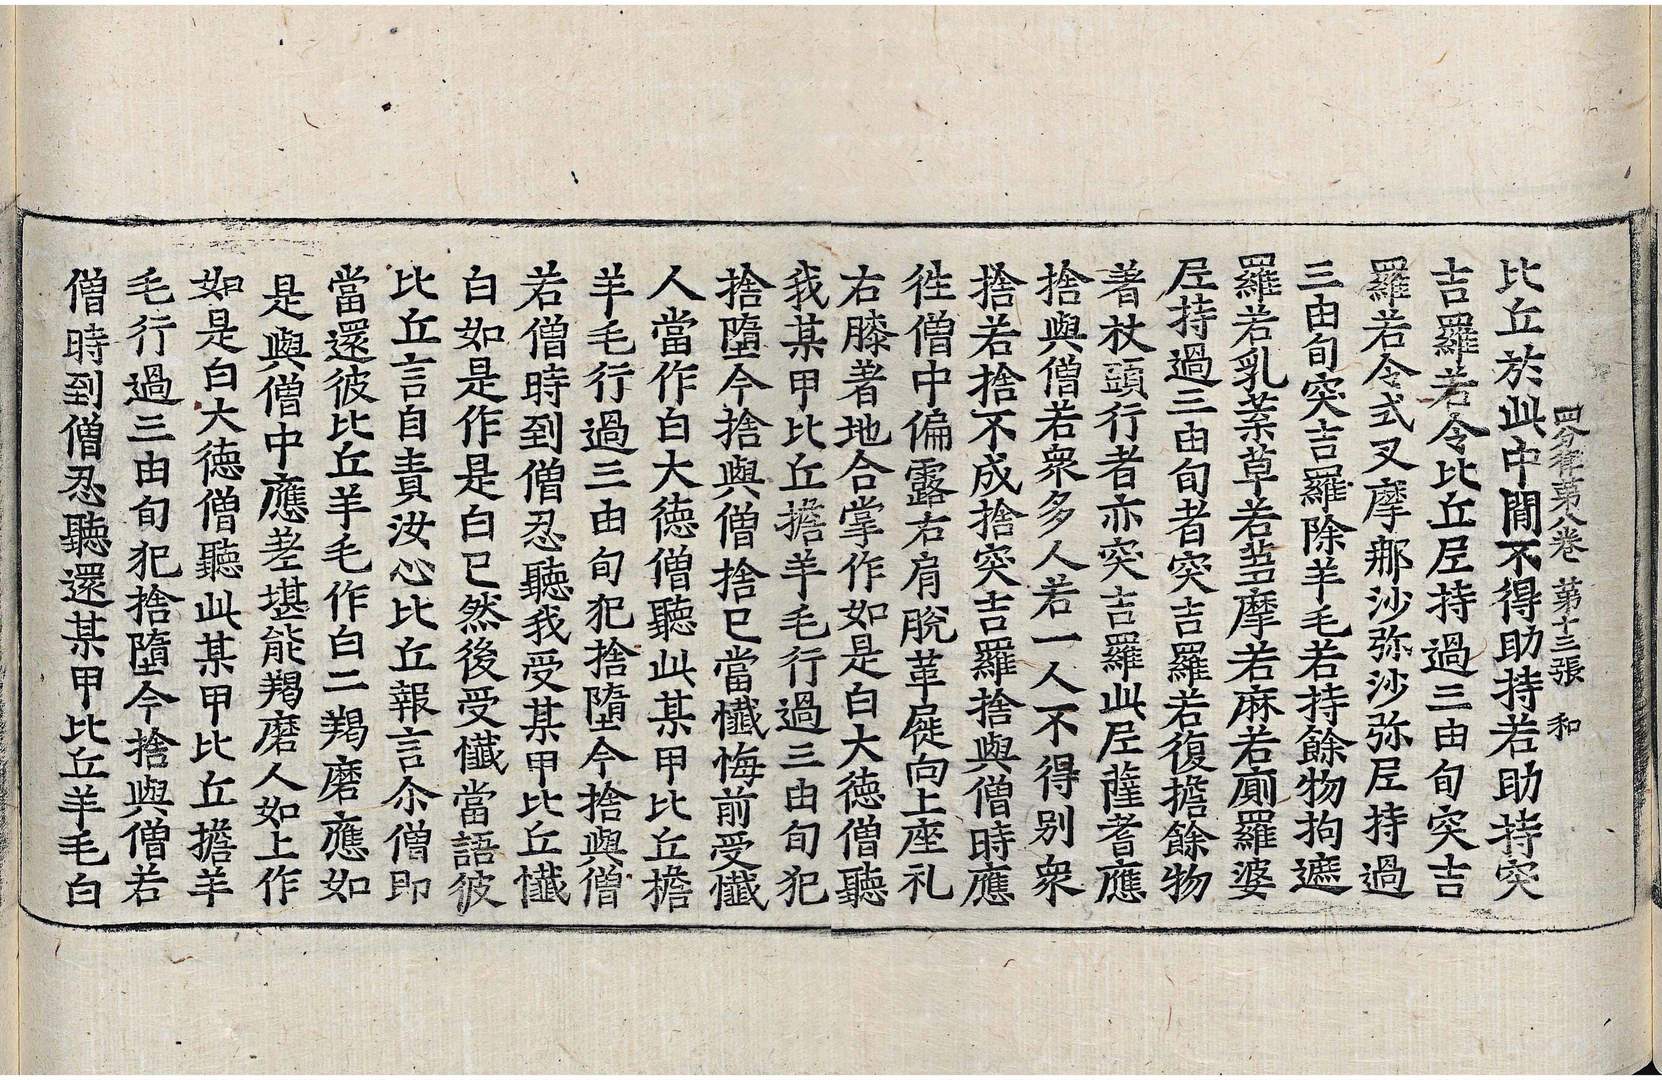 四分律第八卷 第十三張 和
比丘於此中閒不得助持若助持突
吉羅若令比丘尼持過三由旬突吉
羅若令式叉摩那沙弥沙弥尼持過
三由旬突吉羅除羊毛若持餘物拘遮
羅若乳葉草若芻摩若麻若廁羅婆
尼持過三由旬者突吉羅若復擔餘物
著杖頭行者亦突吉羅此尼薩耆應
捨與僧若衆多人若一人不得别衆
捨若捨不成捨突吉羅捨與僧時應
往僧中偏露右肩脫革屣向上座礼
右膝著地合掌作如是白大德僧聽
我某甲比丘擔羊毛行過三由旬犯
捨墮今捨與僧捨已當懺悔前受懺
人當作白大德僧聽此某甲比丘擔
羊毛行過三由旬犯捨墮今捨與僧
若僧時到僧忍聽我受某甲比丘懺
白如是作是白已然後受懺當語彼
比丘言自責汝心比丘報言尒僧即
當還彼比丘羊毛作白二羯磨應如
是與僧中應差堪能羯磨人如上作
如是白大德僧聽此某甲比丘擔羊
毛行過三由旬犯捨墮今捨與僧若
僧時到僧忍聽還某甲比丘羊毛白